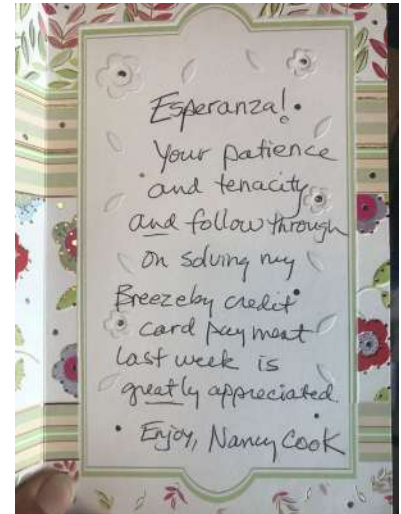 Esperanza!
Your patience
and tenacity
and follow through
on solving my
Breezeby credit
card payment
last week is
greatly appreciated
Enjoy, Nancy Cook